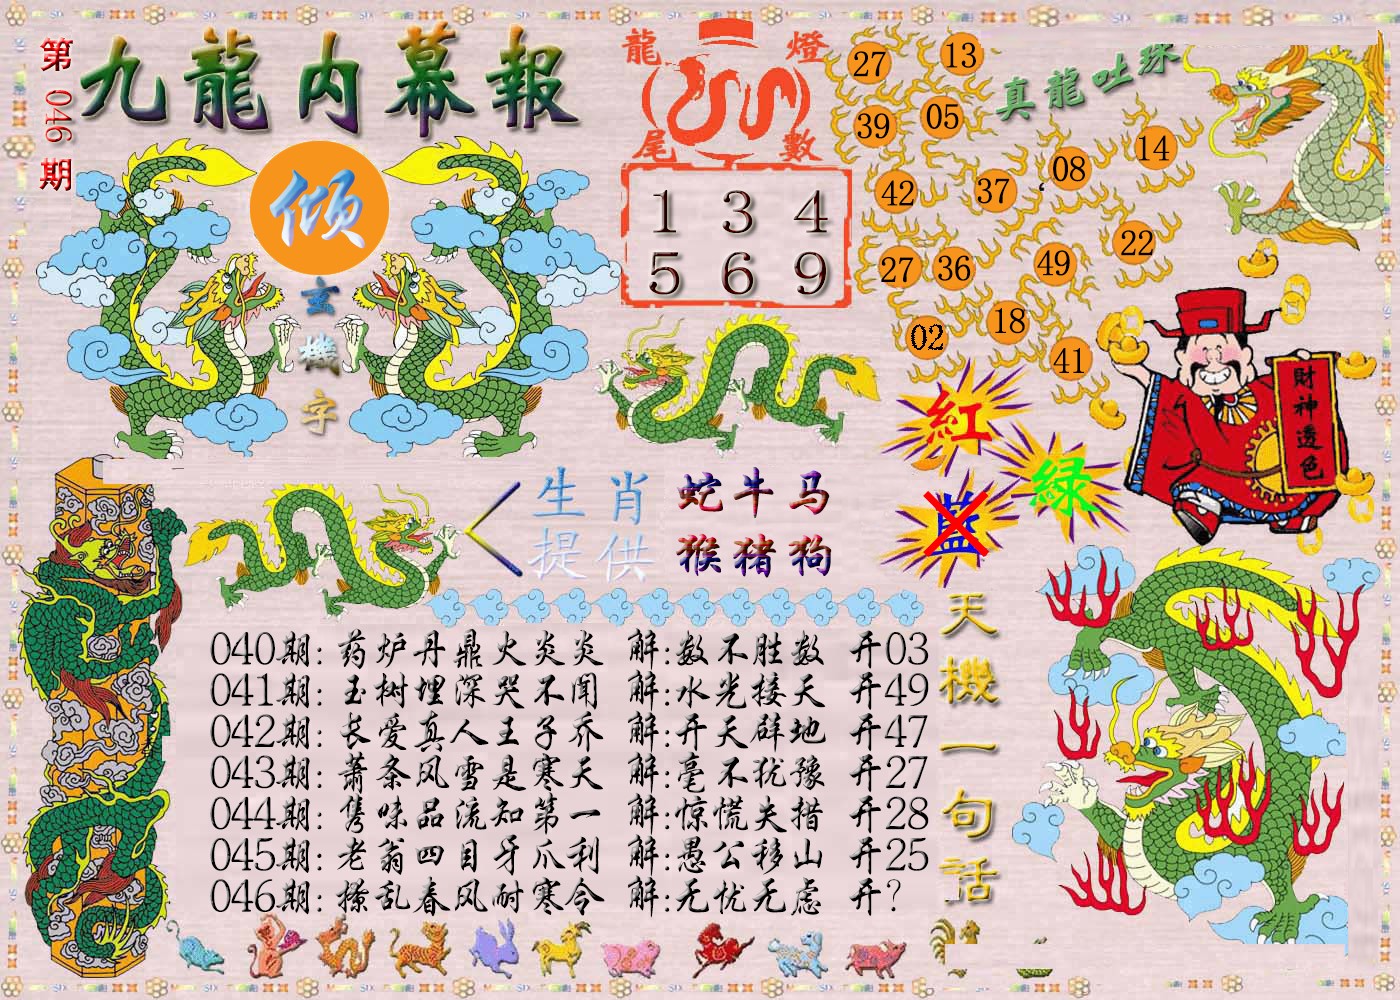 第046期
九龍内幕報
倾
玄機字
龍燈
尾數
1 3 4
5 6 9
真龍吐珠
27 13
39 05
42 37 08 14
27 36 49 22
02 18 41
財神透色
紅
綠
藍
生肖
提供
蛇牛马
猴猪狗
天機一句話
040期: 药炉丹鼎火炎炎 解:数不胜数 开03
041期: 玉树埋深哭不闻 解:水光接天 开49
042期: 长爱真人王子乔 解:开天辟地 开47
043期: 萧条风雪是寒天 解:毫不犹豫 开27
044期: 隽味品流知第一 解:惊慌失措 开28
045期: 老翁四目牙爪利 解:愚公移山 开25
046期: 撩乱春风耐寒令 解:无忧无虑 开?